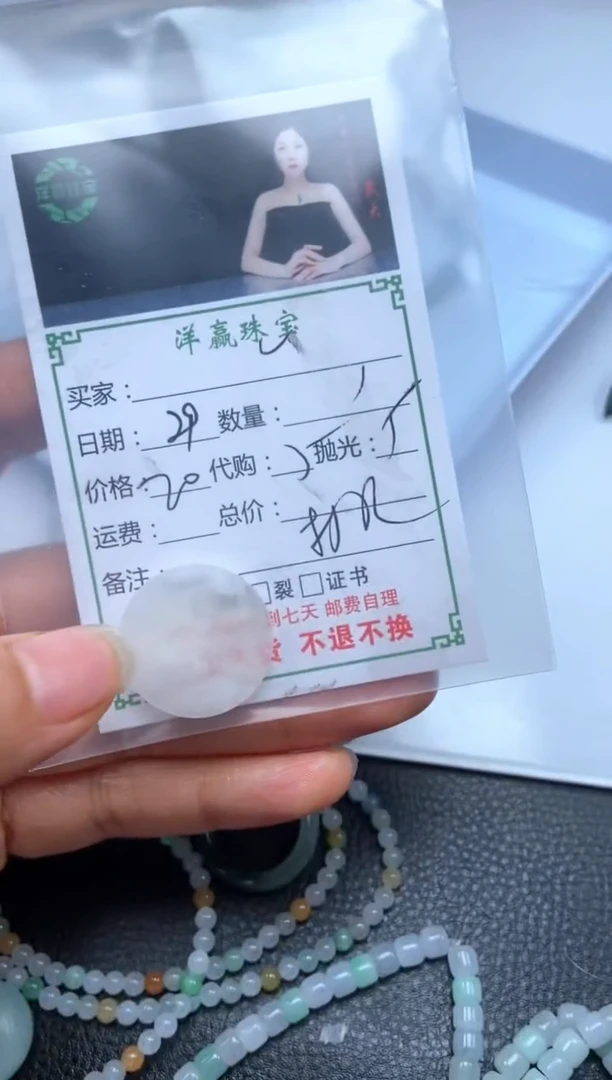 洋赢珠宝
买家：
日期：29 数量：1
价格：20 代购：2 抛光：5
运费： 总价：
备注
裂 □证书
到七天 邮费自理
不退不换